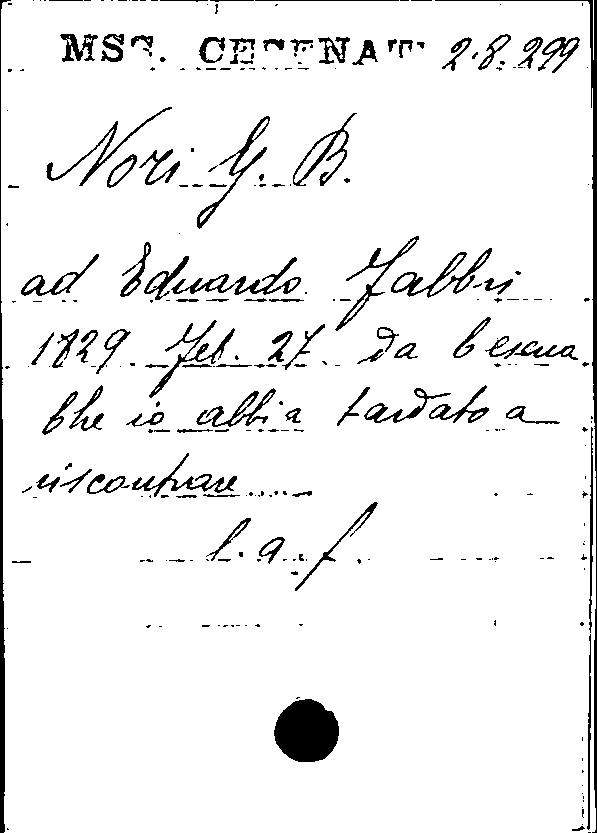 MSS. CESENATI 2.8.299
Nori G. B.
ad Eduardo Fabbri
1829 Feb. 27 da Cesena
Che io abbia tardato a
riscontrare ....
l. a. f.